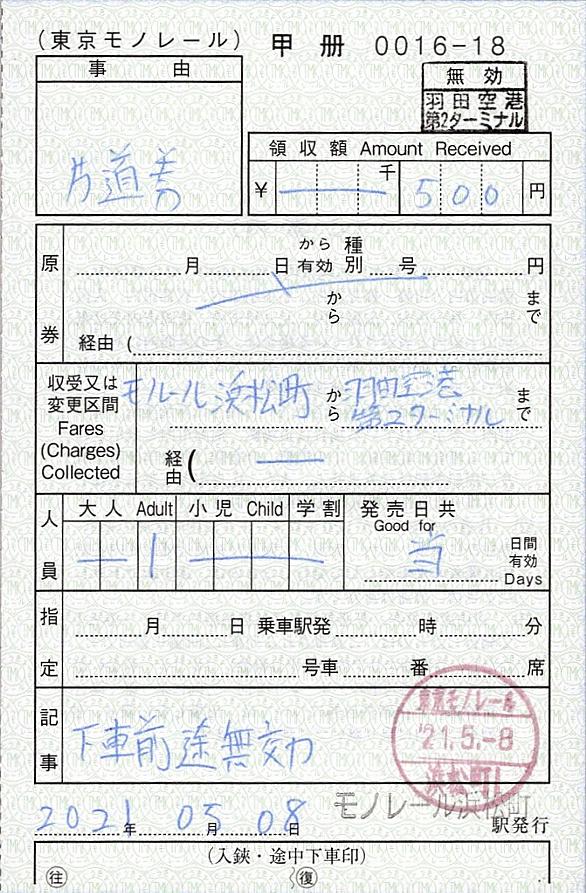 (東京モノレール) 甲 册 0016-18
無効
羽田空港
第2ターミナル
事 由
片道券
領収額 Amount Received
¥ 千 500 円
原券
月 日から有効 種別 号 円
から まで
経由 (
収受又は変更区間 Fares (Charges) Collected
モノレール浜松町 から 羽田空港第2ターミナル まで
経由 (
人員
大人 Adult 小児 Child 学割
1
発売日共
Good for
当 日間有効
Days
指定
月 日 乗車駅発 時 分
号車 番 席
記事
下車前途無効
東京モノレール
'21.5.-8
浜松町1
2021年 05月 08日
モノレール浜松町 駅発行
(入鋏・途中下車印)
往 復